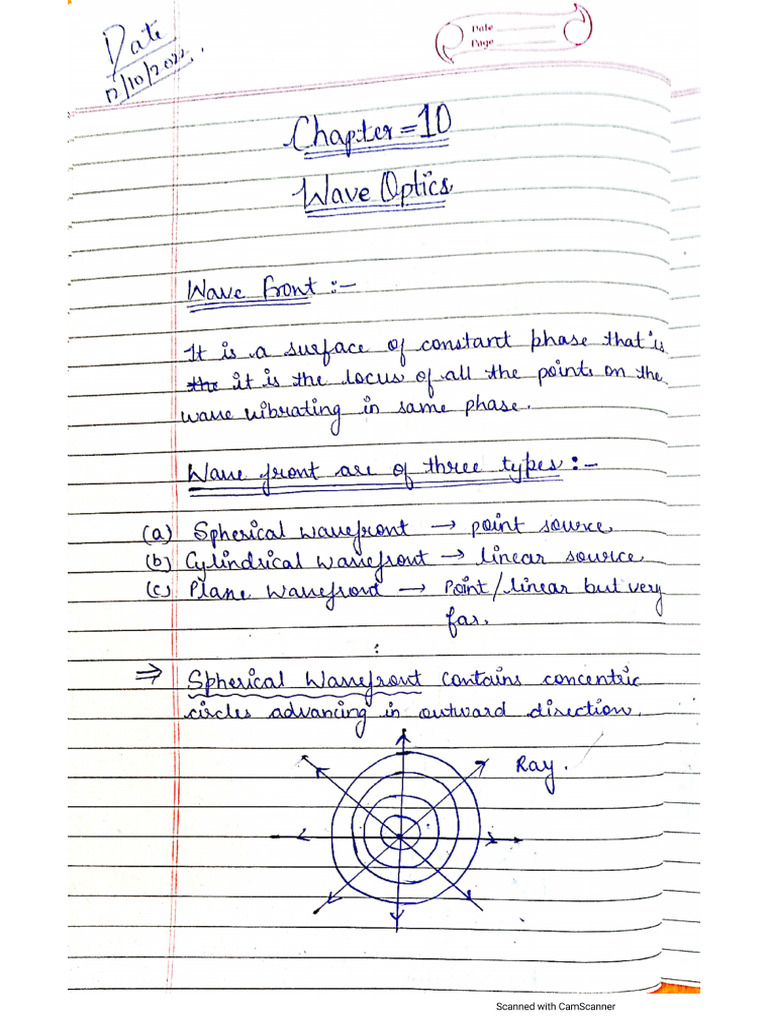 Date
Page
Date
12/10/2022.
Chapter = 10
Wave Optics
Wave front :-
It is a surface of constant phase that is
the it is the locus of all the points on the
wave vibrating in same phase.
Wave front are of three types :-
(a) Spherical wavefront → point source
(b) Cylindrical wavefront → linear source
(c) Plane wavefront → Point/linear but very
far.
⇒ Spherical Wavefront contains concentric
circles advancing in outward direction.
Ray.
Scanned with CamScanner